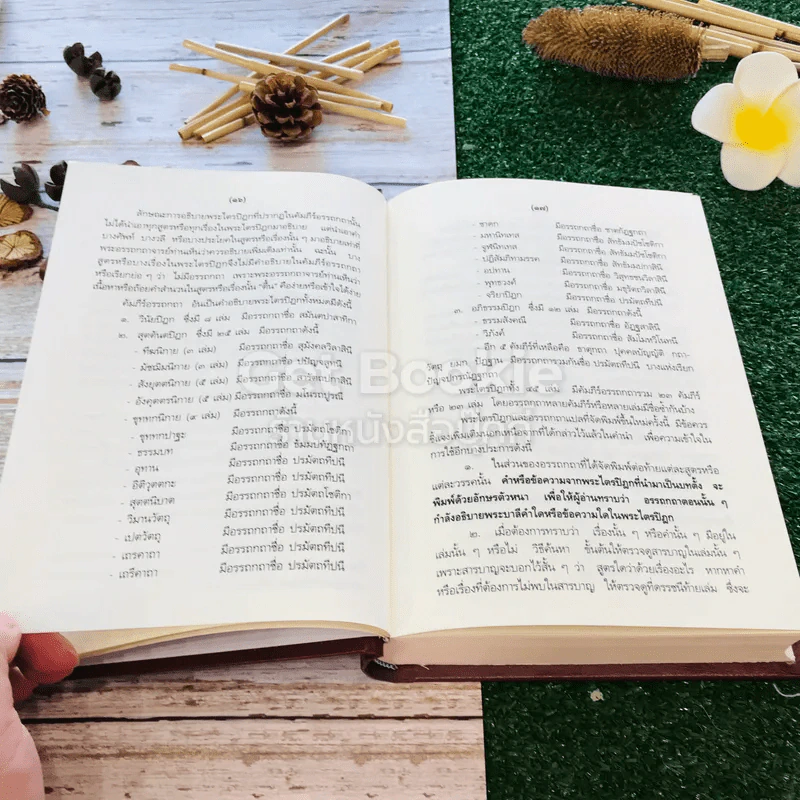 (๑๖)
ลักษณะการอธิบายพระไตรปิฎกที่ปรากฏในคัมภีร์อรรถกถานั้น
ไม่ได้นำเอาทุกสูตรหรือทุกเรื่องในพระไตรปิฎกมาอธิบาย แต่นำเอาคำ
บางศัพท์ บางวลี หรือบางประโยคในสูตรหรือเรื่องนั้น ๆ มาอธิบายเท่าที่
พระอรรถกถาจารย์ท่านเห็นว่าควรอธิบายเพิ่มเติมเท่านั้น ฉะนั้น บาง
สูตรหรือบางเรื่องในพระไตรปิฎกจึงไม่มีคำอธิบายในคัมภีร์อรรถกถา
หรือเรียกย่อ ๆ ว่า ไม่มีอรรถกถา เพราะพระอรรถกถาจารย์ท่านเห็นว่า
เนื้อหาหรือถ้อยคำสำนวนในสูตรหรือเรื่องนั้น "ตื้น" คือง่ายหรือเข้าใจได้ง่าย
คัมภีร์อรรถกถา อันเป็นคำอธิบายพระไตรปิฎกทั้งหมดมีดังนี้
๑. วินัยปิฎก ซึ่งมี ๘ เล่ม มีอรรถกถาชื่อ สมันตปาสาทิกา
๒. สุตตันตปิฎก ซึ่งมี ๒๕ เล่ม มีอรรถกถาดังนี้
- ทีฆนิกาย (๓ เล่ม) มีอรรถกถาชื่อ สุมังคลวิลาสินี
- มัชฌิมนิกาย (๓ เล่ม) มีอรรถกถาชื่อ ปปัญจสูทนี
- สังยุตตนิกาย (๕ เล่ม) มีอรรถกถาชื่อ สารัตถปกาสินี
- อังคุตตรนิกาย (๕ เล่ม) มีอรรถกถาชื่อ มโนรถปูรณี
- ขุททกนิกาย (๙ เล่ม) มีอรรถกถาดังนี้
- ขุททกปาฐะ มีอรรถกถาชื่อ ปรมัตถโชติกา
- ธรรมบท มีอรรถกถาชื่อ ธัมมปทัฏฐกถา
- อุทาน มีอรรถกถาชื่อ ปรมัตถทีปนี
- อิติวุตตกะ มีอรรถกถาชื่อ ปรมัตถทีปนี
- สุตตนิบาต มีอรรถกถาชื่อ ปรมัตถโชติกา
- วิมานวัตถุ มีอรรถกถาชื่อ ปรมัตถทีปนี
- เปตวัตถุ มีอรรถกถาชื่อ ปรมัตถทีปนี
- เถรคาถา มีอรรถกถาชื่อ ปรมัตถทีปนี
- เถรีคาถา มีอรรถกถาชื่อ ปรมัตถทีปนี
(๑๗)
- ชาดก มีอรรถกถาชื่อ ชาตกัฏฐกถา
- มหานิทเทส มีอรรถกถาชื่อ สัทธัมมปัชโชติกา
- จูฬนิทเทส มีอรรถกถาชื่อ สัทธัมมปัชโชติกา
- ปฏิสัมภิทามรรค มีอรรถกถาชื่อ สัทธัมมปกาสินี
- อปทาน มีอรรถกถาชื่อ วิสุทธชนวิลาสินี
- พุทธวงศ์ มีอรรถกถาชื่อ มธุรัตถวิลาสินี
- จริยาปิฎก มีอรรถกถาชื่อ ปรมัตถทีปนี
๓. อภิธรรมปิฎก ซึ่งมี ๑๒ เล่ม มีอรรถกถาดังนี้
- ธรรมสังคณี มีอรรถกถาชื่อ อัฏฐสาลินี
- วิภังค์ มีอรรถกถาชื่อ สัมโมหวิโนทนี
- อีก ๕ คัมภีร์ที่เหลือคือ ธาตุกถา ปุคคลบัญญัติ กถา-
วัตถุ ยมก ปัฏฐาน มีอรรถกถารวมกันชื่อ ปรมัตถทีปนี บางแห่งเรียก
ปัญจปกรณัฏฐกถา
พระไตรปิฎกทั้ง ๔๕ เล่ม มีคัมภีร์อรรถกถารวม ๒๓ คัมภีร์
หรือ ๒๓ เล่ม โดยอรรถกถาหลายคัมภีร์หรือหลายเล่มมีชื่อซ้ำกันบ้าง
พระไตรปิฎกและอรรถกถาแปลที่จัดพิมพ์ขึ้นใหม่ครั้งนี้ มีข้อควร
ชี้แจงเพิ่มเติมนอกเหนือจากที่ได้กล่าวไว้แล้วในคำนำ เพื่อความเข้าใจใน
การใช้อีกบางประการดังนี้
๑. ในส่วนของอรรถกถาที่ได้จัดพิมพ์ต่อท้ายแต่ละสูตรหรือ
แต่ละวรรคนั้น คำหรือข้อความจากพระไตรปิฎกที่นำมาเป็นบทตั้ง จะ
พิมพ์ด้วยอักษรตัวหนา เพื่อให้ผู้อ่านทราบว่า อรรถกถาตอนนั้น ๆ
กำลังอธิบายพระบาลีคำใดหรือข้อความใดในพระไตรปิฎก
๒. เมื่อต้องการทราบว่า เรื่องนั้น ๆ หรือคำนั้น ๆ มีอยู่ใน
เล่มนั้น ๆ หรือไม่ วิธีค้นหา ขั้นต้นให้ตรวจดูสารบาญในเล่มนั้น ๆ
เพราะสารบาญจะบอกไว้สั้น ๆ ว่า สูตรใดว่าด้วยเรื่องอะไร หากหาคำ
หรือเรื่องที่ต้องการไม่พบในสารบาญ ให้ตรวจดูที่ดรรชนีท้ายเล่ม ซึ่งจะ
Get Bookie